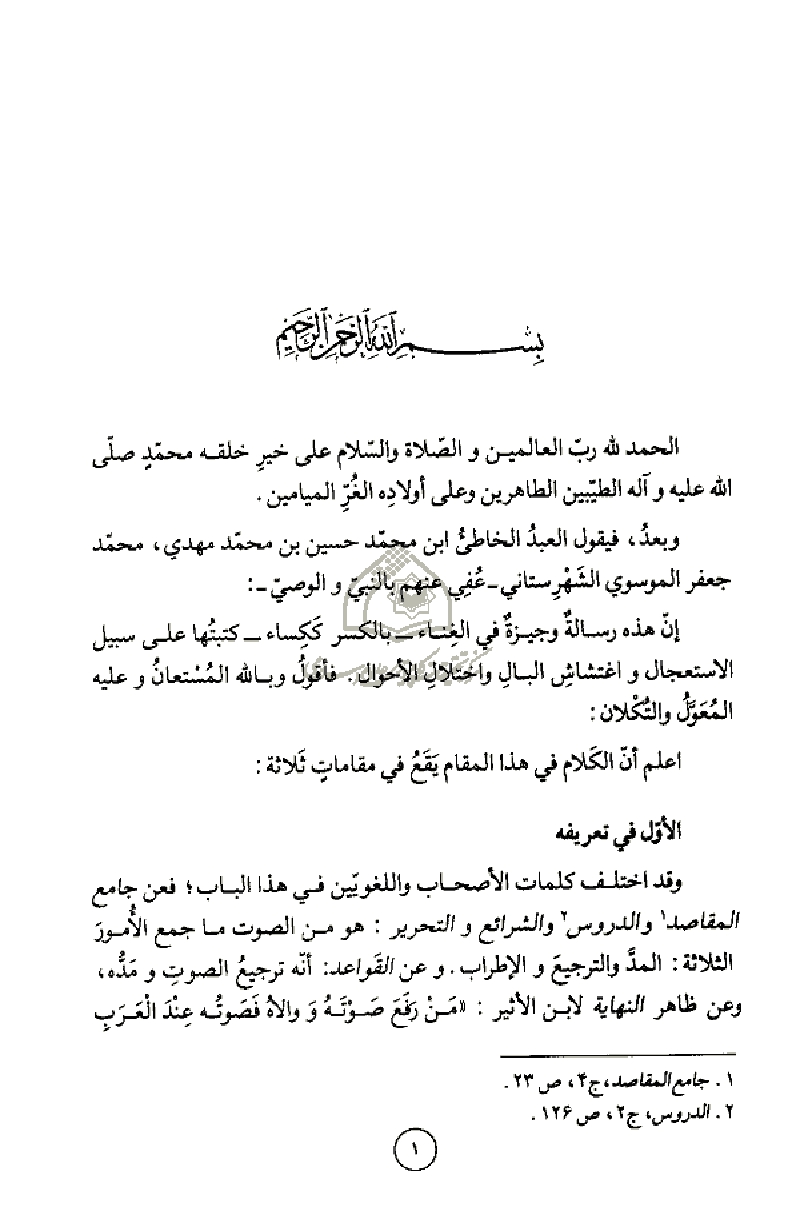 بِسْمِ اللهِ الرَّحْمٰنِ الرَّحِيْمِ
الحمد لله ربّ العالمين و الصّلاة والسّلام على خيرِ خلقه محمّدٍ صلّى
الله عليه و آله الطيّبين الطاهرين وعلى أولادِه الغُرِّ الميامين .
وبعدُ، فيقول العبدُ الخاطئُ ابن محمّد حسين بن محمّد مهدي، محمّد
جعفر الموسوي الشَهْرستاني ـ عُفِي عنهم بالنبيّ و الوصيّ ـ :
إنّ هذه رسالةٌ وجيزةٌ في الغِناء ـ بالكسر كَكِساء ـ كتبتُها على سبيل
الاستعجال و اغتشاشِ البالِ واختلالِ الأحوال . فأقولُ وبالله المُسْتعانُ و عليه
المُعَوَّلُ والتُكْلان :
اعلم أنّ الكَلام في هذا المقام يَقَعُ في مقاماتٍ ثَلاثة :
الأوّل في تعريفه
وقد اختلف كلمات الأصحاب واللغويّين في هذا الباب؛ فعن جامع
المقاصد١ والدروس٢ والشرائع و التحرير : هو من الصوت ما جمع الأُمورَ
الثلاثة : المدَّ والترجيعَ و الإطراب . و عن القَواعد: أنّه ترجيعُ الصوتِ و مَدُّه،
وعن ظاهر النهاية لابن الأثير : «مَنْ رَفَعَ صَوْتَهُ وَ والاهُ فَصَوتُه عِنْدَ الْعَرَبِ
١ . جامع المقاصد، ج۴، ص ٢٣ .
٢ . الدروس، ج٢، ص ١٢۶ .
١